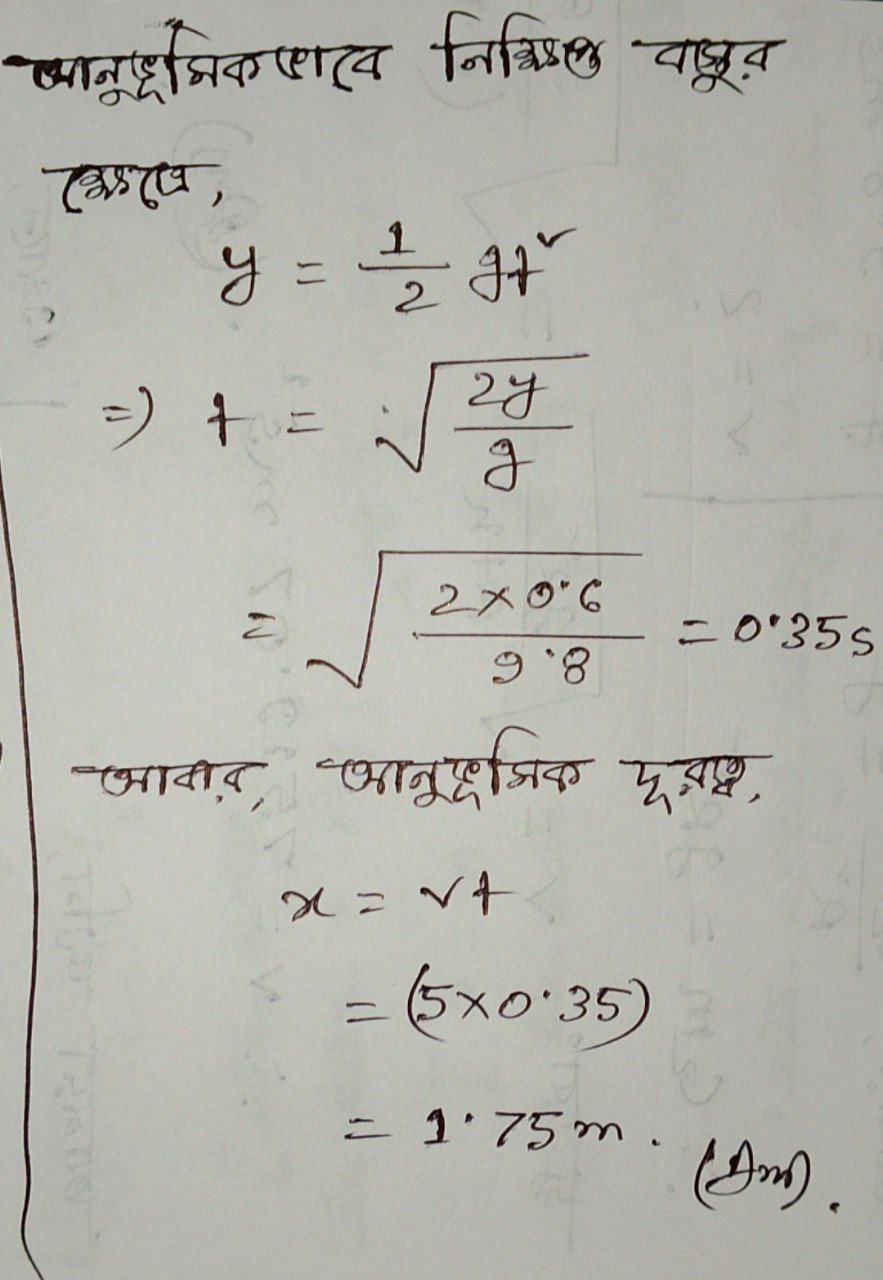 আনুভূমিকভাবে নিক্ষিপ্ত বস্তুর
ক্ষেত্রে,
y = 1/2 gt²
=> t = √(2y/g)
= √(2×0.6/9.8) = 0.35s
আবার, আনুভূমিক দূরত্ব,
x = vt
= (5×0.35)
= 1.75m.
(Ans).